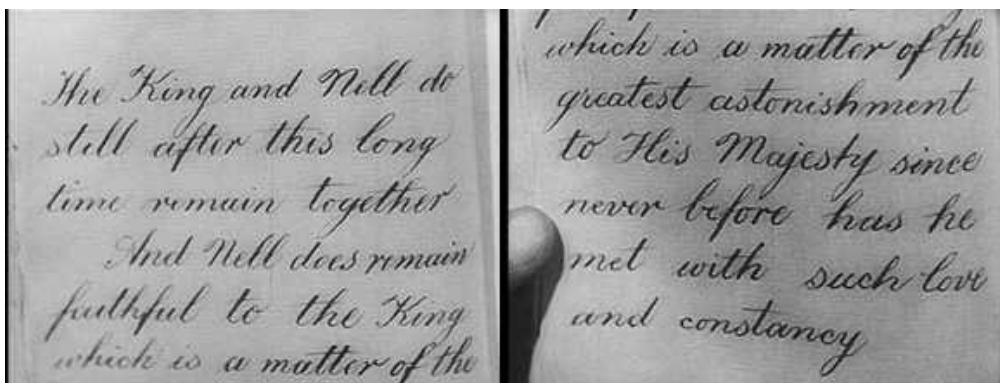 The King and Nell do
still after this long
time remain together
And Nell does remain
faithful to the King
which is a matter of the
which is a matter of the
greatest astonishment
to His Majesty since
never before has he
met with such love
and constancy